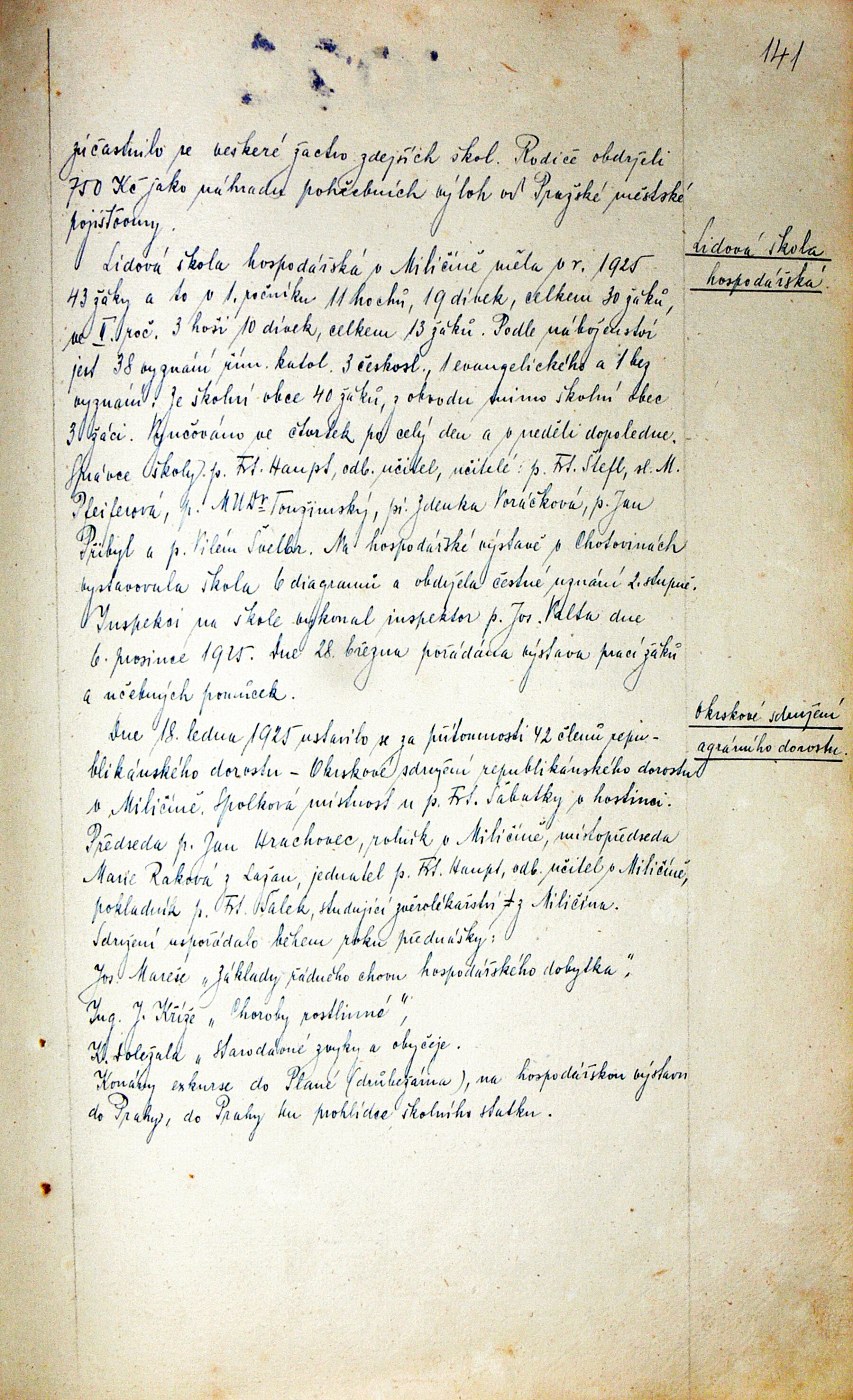 141
zúčastnilo se veškeré žactvo zdejších škol. Rodiče obdrželi
750 Kč jako náhradu pohřebních výloh od Pražské městské
pojišťovny.
Lidová škola
hospodářská
Lidová škola hospodářská v Miličíně měla v r. 1925
43 žáky a to v 1. ročníku 11 hochů, 19 dívek, celkem 30 žáků,
ve II. roč. 3 hoši 10 dívek, celkem 13 žáků. Podle náboženství
jest 38 vyznání řím. katol. 3 českosl., 1 evangelického a 1 bez
vyznání. Ze školní obce 40 žáků, z obvodu mimo školní obec
3 žáci. Vyučováno ve čtvrtek po celý den a v neděli dopoledne.
Správce školy: p. Frt. Haupt, odb. učitel, učitelé: p. Frt. Štefl, sl. M.
Pfeiferová, p. MUDr Toužimský, pí. Zdenka Voráčková, p. Jan
Přibyl a p. Vilém Švellar. Na hospodářské výstavě v Chotovinách
vystavovala škola 6 diagramů a obdržela čestné uznání 2. stupně.
Inspekci na škole vykonal inspektor p. Jos. Valta dne
6. prosince 1925. Dne 28. března pořádána výstava prací žáků
a učebných pomůcek.
Okrskové sdružení
agrárního dorostu.
Dne 18. ledna 1925 ustavilo se za přítomnosti 42 členů repu-
blikánského dorostu - Okrskové sdružení republikánského dorostu
v Miličíně. Spolková místnost u p. Frt. Šabatky v hostinci.
Předseda p. Jan Hrachovec, rolník v Miličíně, místopředseda
Marie Raková z Lažan, jednatel p. Frt. Haupt, odb. učitel v Miličíně,
pokladník p. Frt. Šálek, studující zvěrolékařství z Miličína.
Sdružení uspořádalo během roku přednášky:
Jos. Mareše „Základy řádného chovu hospodářského dobytka",
Ing. J. Kříže „Choroby rostlinné",
K. Doležala „Starodavné zvyky a obyčeje.
Konány exkurse do Plané (drůbežárna), na hospodářskou výstavu
do Prahy, do Prahy ku prohlídce školního statku.